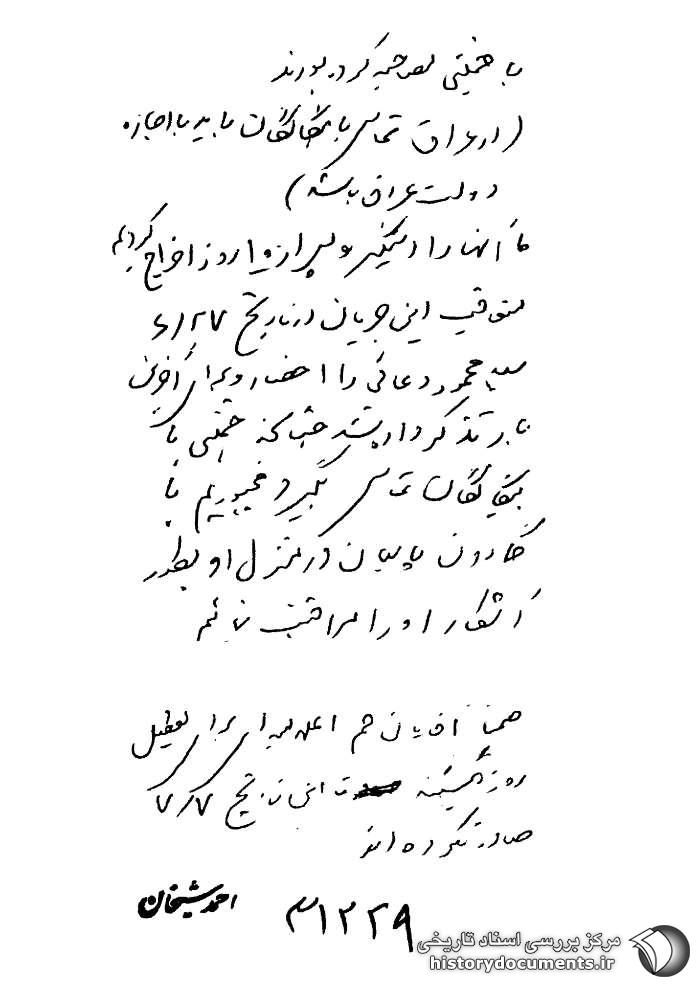 با خمینی مصاحبه کرده بودند
(در عراق تماس با بیگانگان باید با اجازه
دولت عراق باشد)
ما آنها را دستگیر و پس از روز اخراج کردیم
متعاقب این جریان در تاریخ ۶/۲۷
سید محمود دعائی را احضار و برای آخرین
بار تذکر داده شد چنانچه خمینی با
بیگانگان تماس بگیرد مجبوریم با
گماردن پاسبان در منزل او بطور
آشکار او را مراقبت نمائیم
ضمناً آقایان هم اعلامیه‌ای برای تعطیل
روز یکشنبه تاریخ ۷/۷
صادر نکرده‌اند
احمد شیخان
۳۱۲۲۹
مرکز بررسی اسناد تاریخی
historydocuments.ir